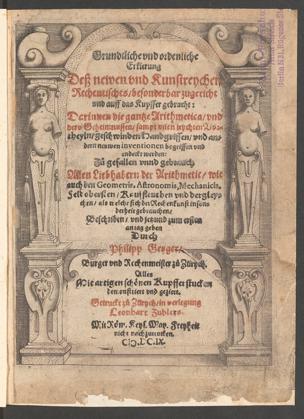 Grundtliche vnd ordenliche
Erklerung
Deß newen vnd Kunstreychen
Rechentisches, besonderbar zugericht
vnd auff das Kupffer gebracht:
Darinnen die gantze Arithmetica, vnd
dero Geheimnussen, sampt vilen
geschwinden Handgriffen, vnd an-
dern neuwen inventionen begriffen vnd
endeckt werden:
Zů gefallen vnnd gebrauch
Allen Liebhabern der Arithmetic, wie
auch den Geometris, Astronomis, Mechanicis,
Feldobersten, Kauffleuthen vnd dergleych-
en, als welche sich der Rechenkunst inson-
derheit gebrauchen,
Beschriben, vnd jetzund zum ersten
an tag geben
Durch
Philipp Geyger,
Burger vnd Rechenmeister zů Zürych.
Alles
Mit artigen schönen Kupfferstucken
demonstriert vnd geziert.
Getruckt zů Zürych, in verlegung
Leonhart
Mit Röm. Keys. May. Freyheit
nicht nachzutrucken.
CIↃ.IↃC.IX.